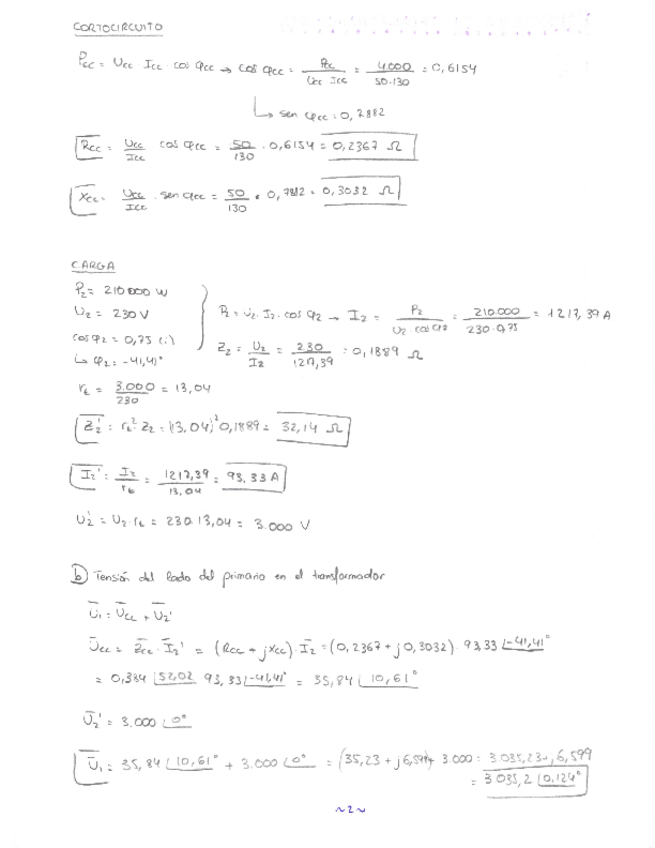 CORTOCIRCUITO
Pcc = Ucc · Icc · cos φcc → cos φcc = Pcc / (Ucc Icc) = 4.000 / (50·130) = 0,6154
↳ sen φcc = 0,7882
Rcc = Ucc/Icc cos φcc = 50/130 · 0,6154 = 0,2367 Ω
Xcc = Ucc/Icc · sen φcc = 50/130 · 0,7882 = 0,3032 Ω
CARGA
P2 = 210000 W
U2 = 230 V
cos φ2 = 0,75 (i)
↳ φ2 = -41,41°
P2 = U2 · I2 · cos φ2 → I2 = P2 / (U2 · cos φ2) = 210.000 / (230·0,75) = 1217,39 A
Z2 = U2/I2 = 230 / 1217,39 = 0,1889 Ω
rt = 3.000/230 = 13,04
Z2' = rt² · Z2 = (13,04)² 0,1889 = 32,14 Ω
I2' = I2/rt = 1217,39 / 13,04 = 93,33 A
U2' = U2 · rt = 230·13,04 = 3.000 V
b) Tensión del lado del primario en el transformador
U̅1 = U̅cc + U̅2'
U̅cc = Z̅cc · I̅2' = (Rcc + jXcc) · I̅2 = (0,2367 + j0,3032) · 93,33 ∠-41,41°
= 0,384 ∠52,02 93,33 ∠-41,41° = 35,84 ∠10,61°
U̅2' = 3.000 ∠0°
U̅1 = 35,84 ∠10,61° + 3.000 ∠0° = (35,23 + j6,599) + 3.000 = 3.035,23 + j6,599
= 3.035,2 ∠0,124°
~2~